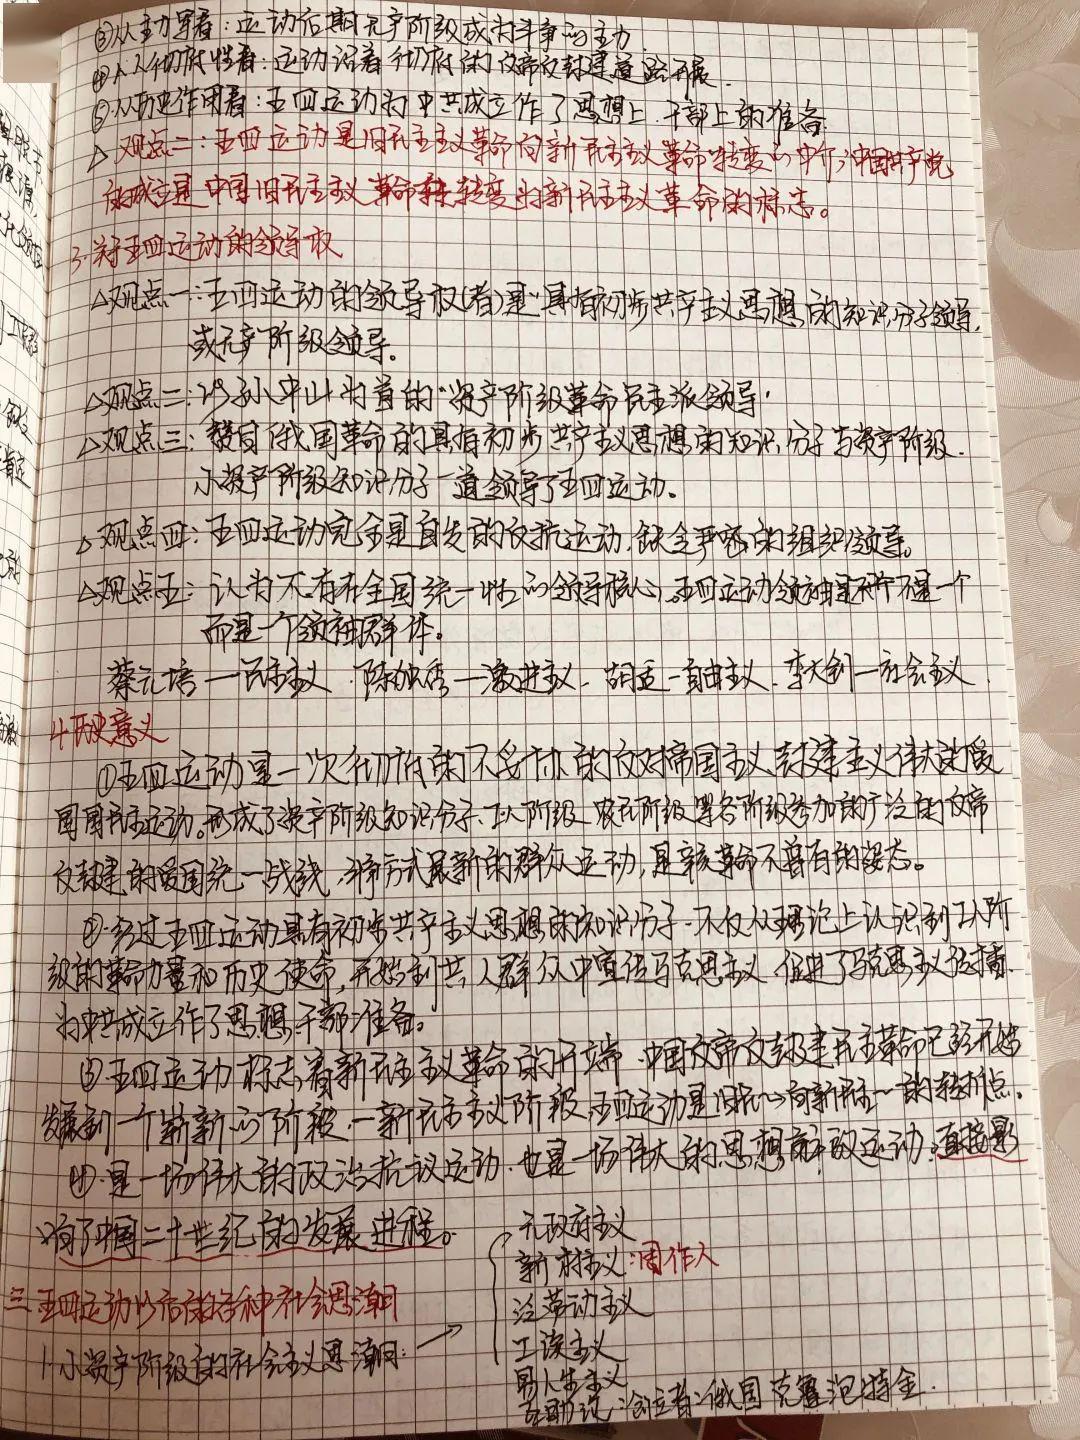 ③从主力军看：运动后期无产阶级成为斗争的主力.
④从彻底性看：运动沿着彻底的反帝反封建道路开展.
⑤从历史作用看：五四运动为中共成立作了思想上.干部上的准备.
△观点二：五四运动是旧民主主义革命向新民主主义革命转变的中介，中国共产党
的成立是中国旧民主主义革命转变为新民主主义革命的标志。
3.关于五四运动的领导权
△观点一：五四运动的领导权(者)是"具有初步共产主义思想的知识分子领导，
或无产阶级领导。
△观点二：以孙中山为首的"资产阶级革命民主派领导"
△观点三：赞同俄国革命的具有初步共产主义思想的知识分子与资产阶级.
小资产阶级知识分子一道领导了五四运动。
△观点四：五四运动完全是自发的反抗运动，缺乏严密的组织领导。
△观点五：认为不存在全国统一性的领导核心。五四运动领袖是不是一个
而是一个领袖群体。
蔡元培—民主主义.陈独秀—激进主义.胡适—自由主义.李大钊—社会主义.
4.历史意义
①五四运动是一次彻底的不妥协的反对帝国主义封建主义伟大的爱
国民主运动。形成了资产阶级知识分子、工人阶级、农民阶级等各阶级参加的广泛的反帝
反封建的爱国统一战线，方式最新的群众运动，是辛亥革命不曾有的姿态。
②经过五四运动具有初步共产主义思想的知识分子.不仅从理论上认识到工人阶
级的革命力量和历史使命，开始到工人群众中宣传马克思主义 促进了马克思主义传播.
为中共成立作了思想.干部准备。
③五四运动标志着新民主主义革命的开端.中国反帝反封建民主革命已经开始
发展到一个崭新的阶段—新民主主义阶段.五四运动是旧民→向新民主—的转折点.
④.是一场伟大的政治抗议运动.也是一场伟大的思想解放运动.直接影
响了中国二十世纪的发展进程。
三.五四运动以后的各种社会思潮
1.小资产阶级的社会主义思潮：
无政府主义
新村主义：周作人
泛劳动主义
工读主义
互助说.创立者：俄国克鲁泡特金.